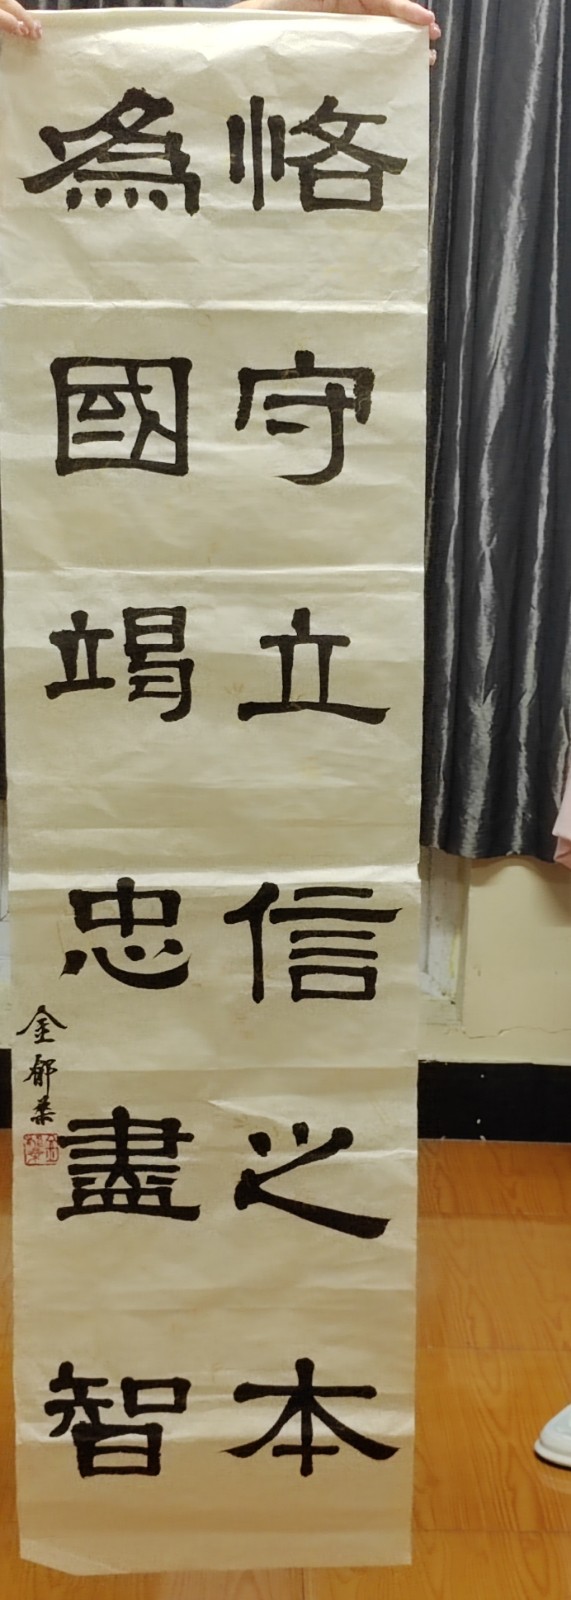 恪守立信之本
為國竭忠盡智
金郁葇